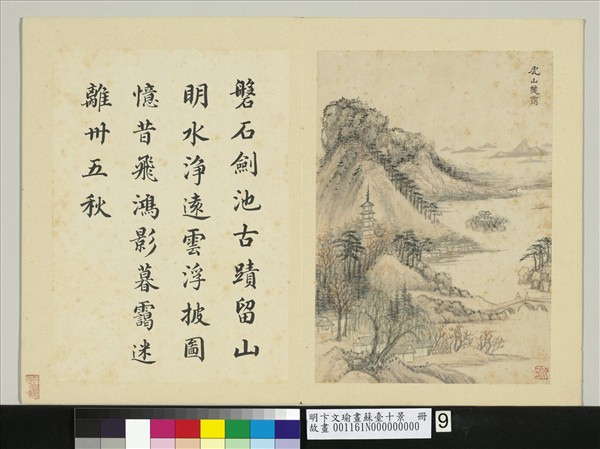 虎山隄靄
磐石劍池古蹟留山
明水淨遠雲浮披圖
憶昔飛鴻影暮靄迷
離卅五秋
明卞文瑜畫蘇臺十景 冊
故畫 001161N000000000
9